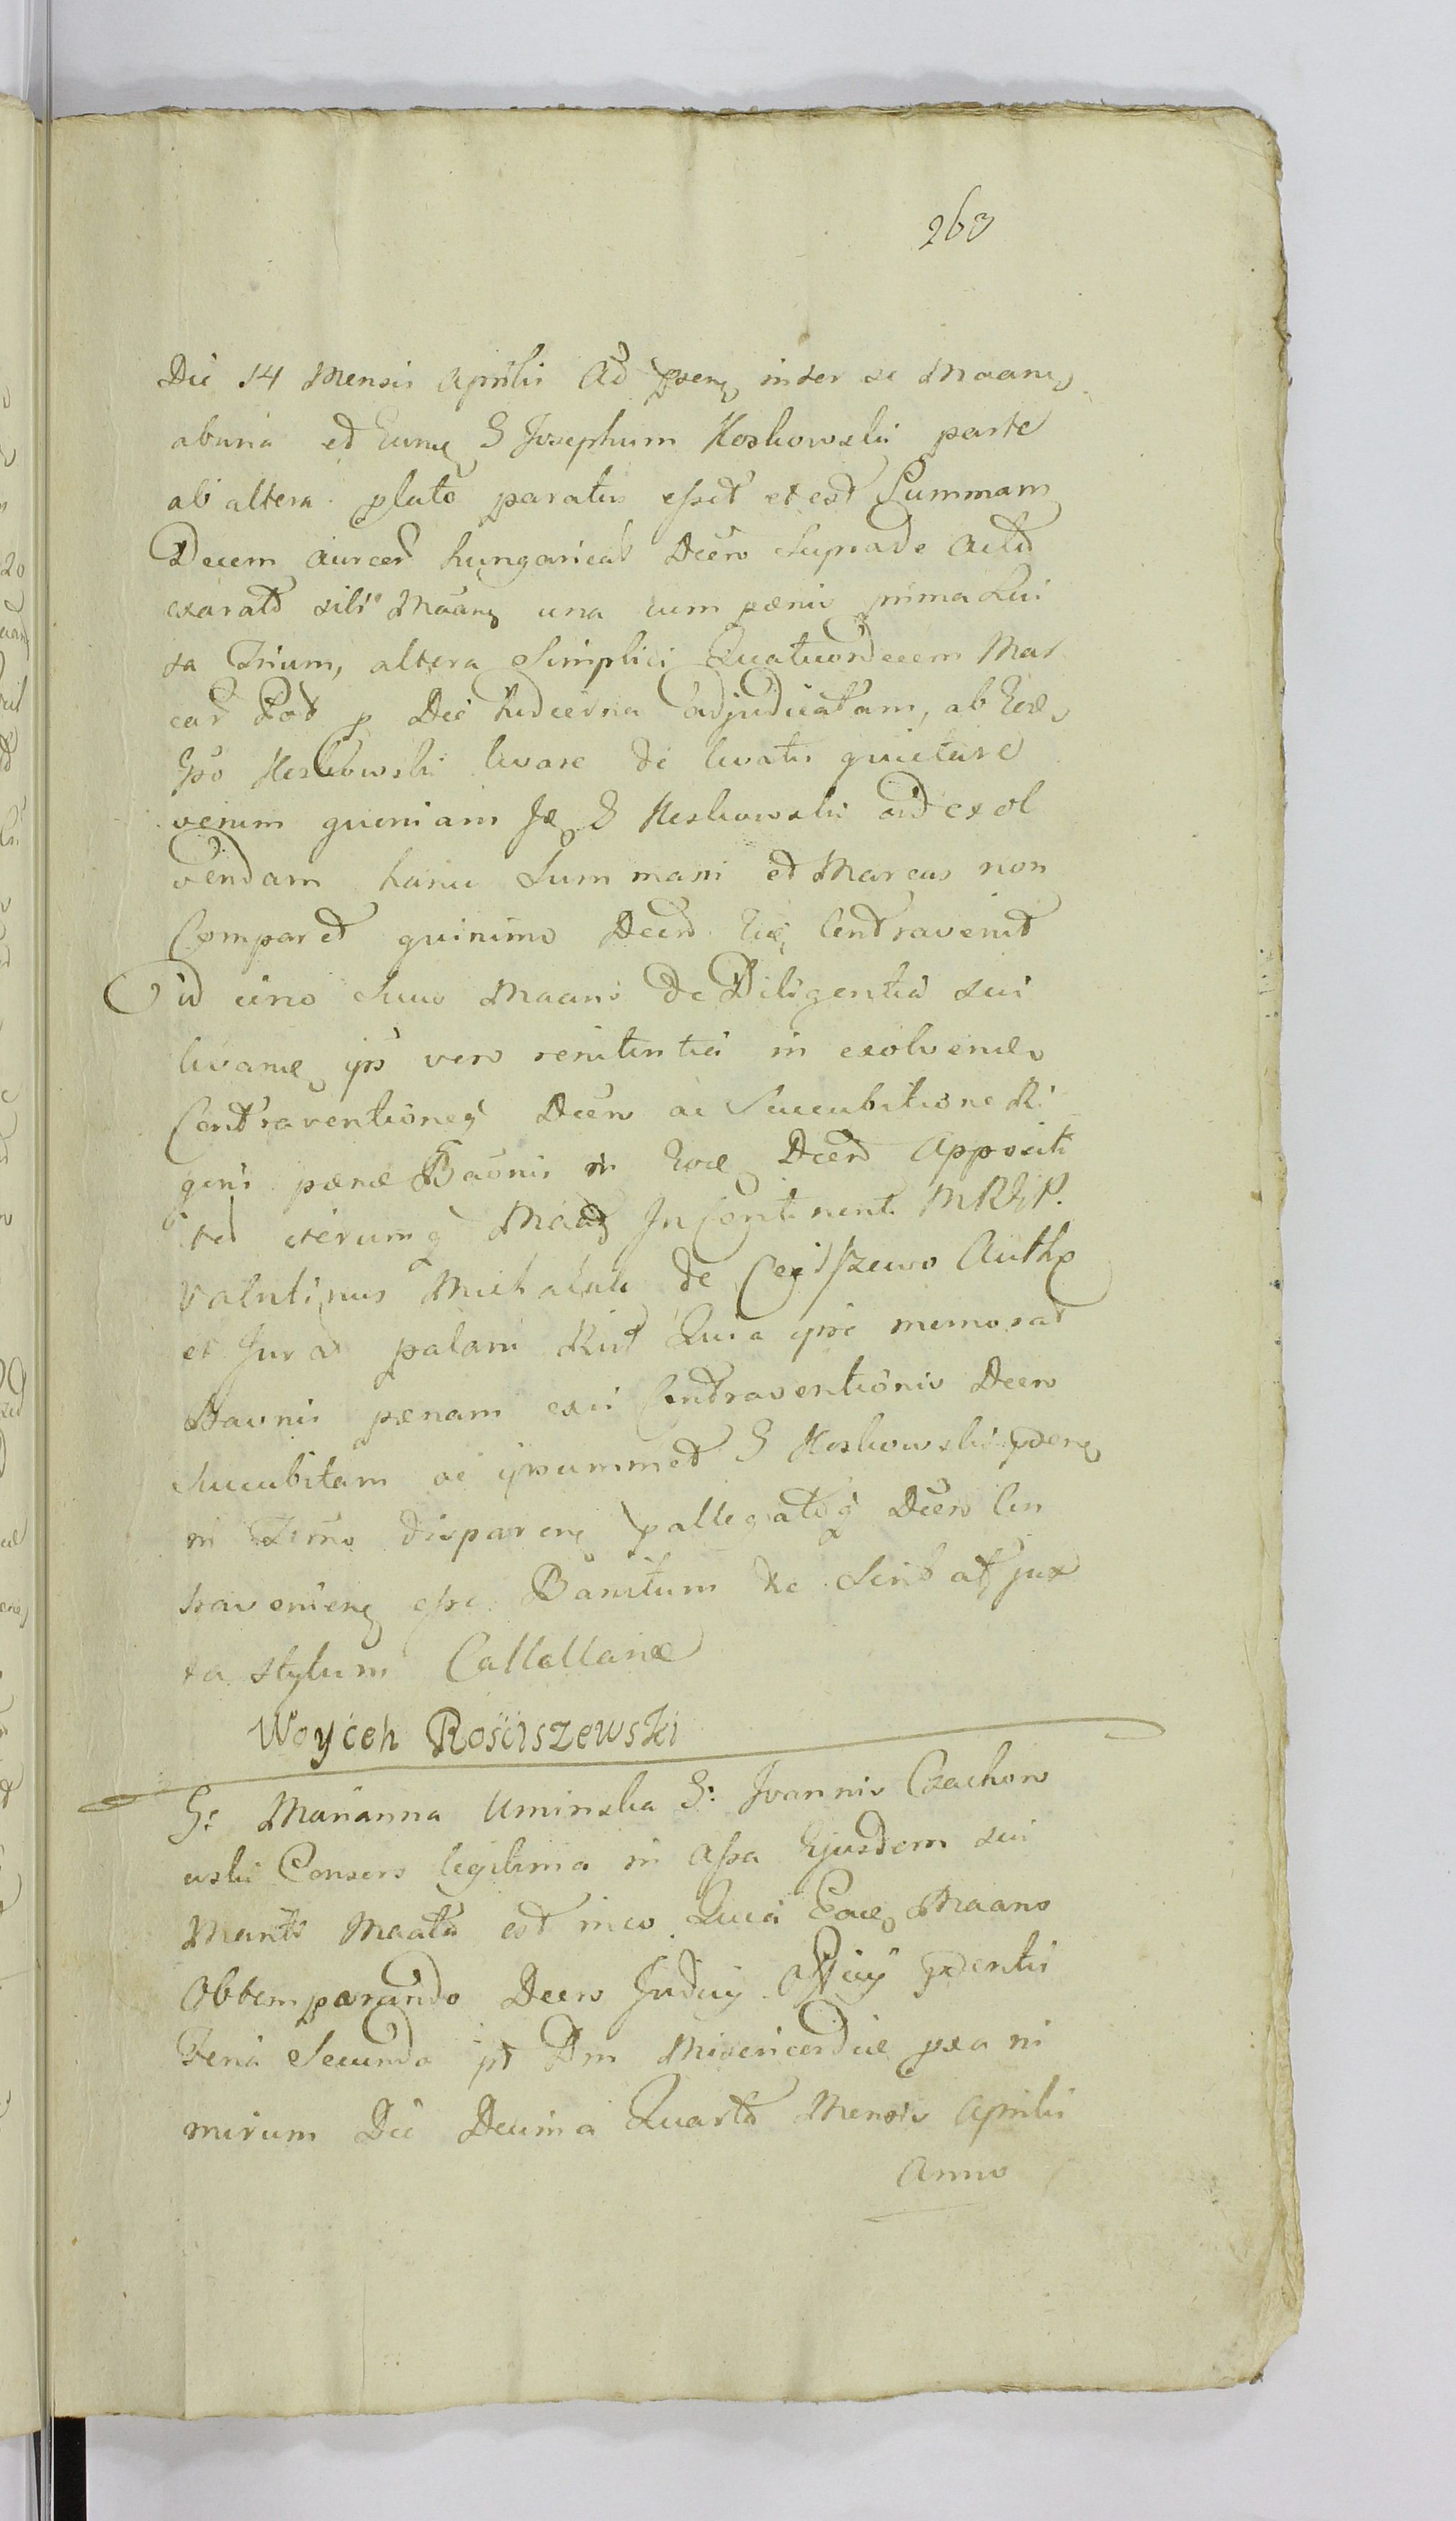 263
Die 14 Mensis Aprilis Ad psens inter se Maane
ab una et Eume G Josephum Koskowski parte
ab altera plato paratus esset et est Summam
Decem aureor hungarical Decro Suprade actu
exarato sibi Maane una cum pænis prima Lui
ta Trium, altera Simplici Quatuordecem Mar
car Pol p Dec adjudicatam, ab Eode
Gso Koskowski levare de levatis quietare
verum quoniam Je G Koskowski ad exol
vendam hanc Summam et Marcas non
Comparet quinimo Decro Contravenit
Id circo Suus Maans de Diligentia sui
levane ips vero renitentia in exolvene
Contraventioneq Decro ac Succubitione Ri
goris pænæ Baonis in Eode Decro Appositi
ted iterumq Maas In Continenti MRGP.
Valentinus Michalski de Authe
et Jurat palam Rict Quia ipse memorat
Bavnis pænam exii Contraventionis Decro
Succubitam ac ipsummet G Koskowski psens
in Termo disparene pallegatoq Decro Con
traveniene esse Banitum de Scrit at jux
ta stylum Callellariæ
Woyćeh Rośćiszewski
G: Marianna Uminska G: Joannis Czachow
wski Consors legitima in assa Ejusdem sui
Mariti Maata est in eo Quia Eade Maans
Obtemperando Decro Judicy Officy psentis
Feria Secunda pt Dm Misericordiæ pxa ni
mirum Die Decima Quarta Mensis Aprilis
Anno